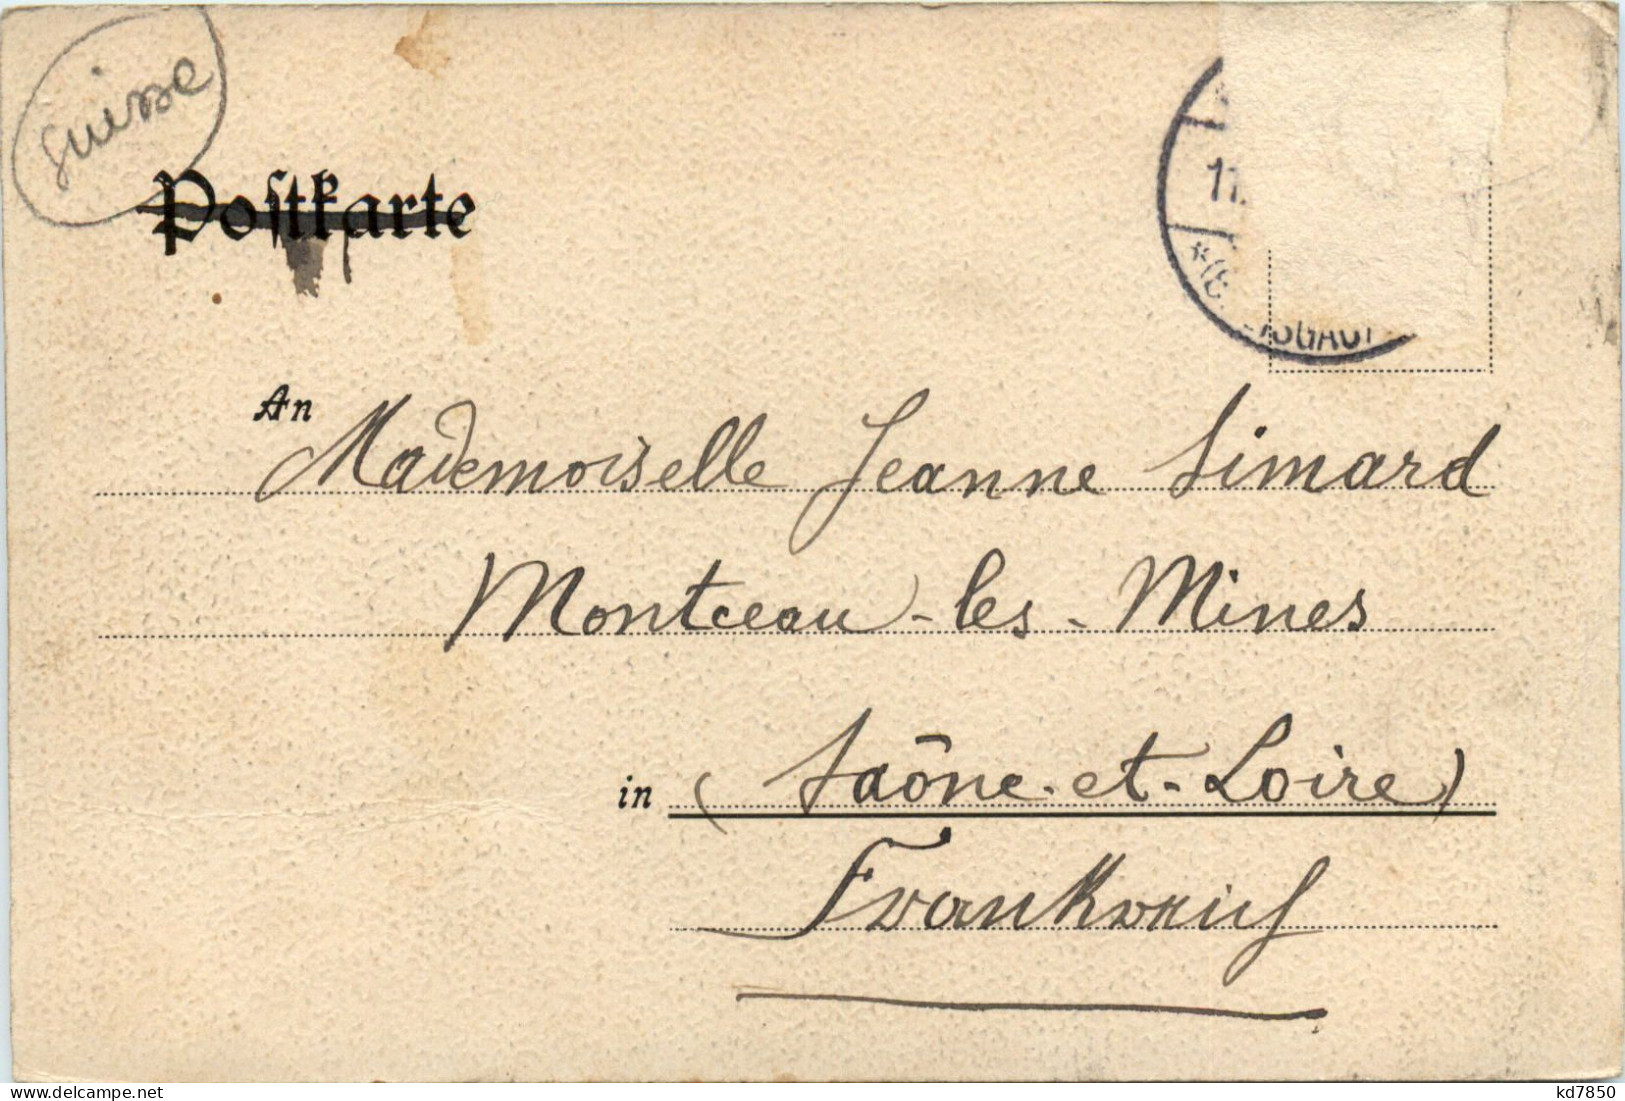 suisse
Postkarte
11.
An Mademoiselle Jeanne Simard
Montceau-les-Mines
in (Saône-et-Loire)
Frankreich
kd7850